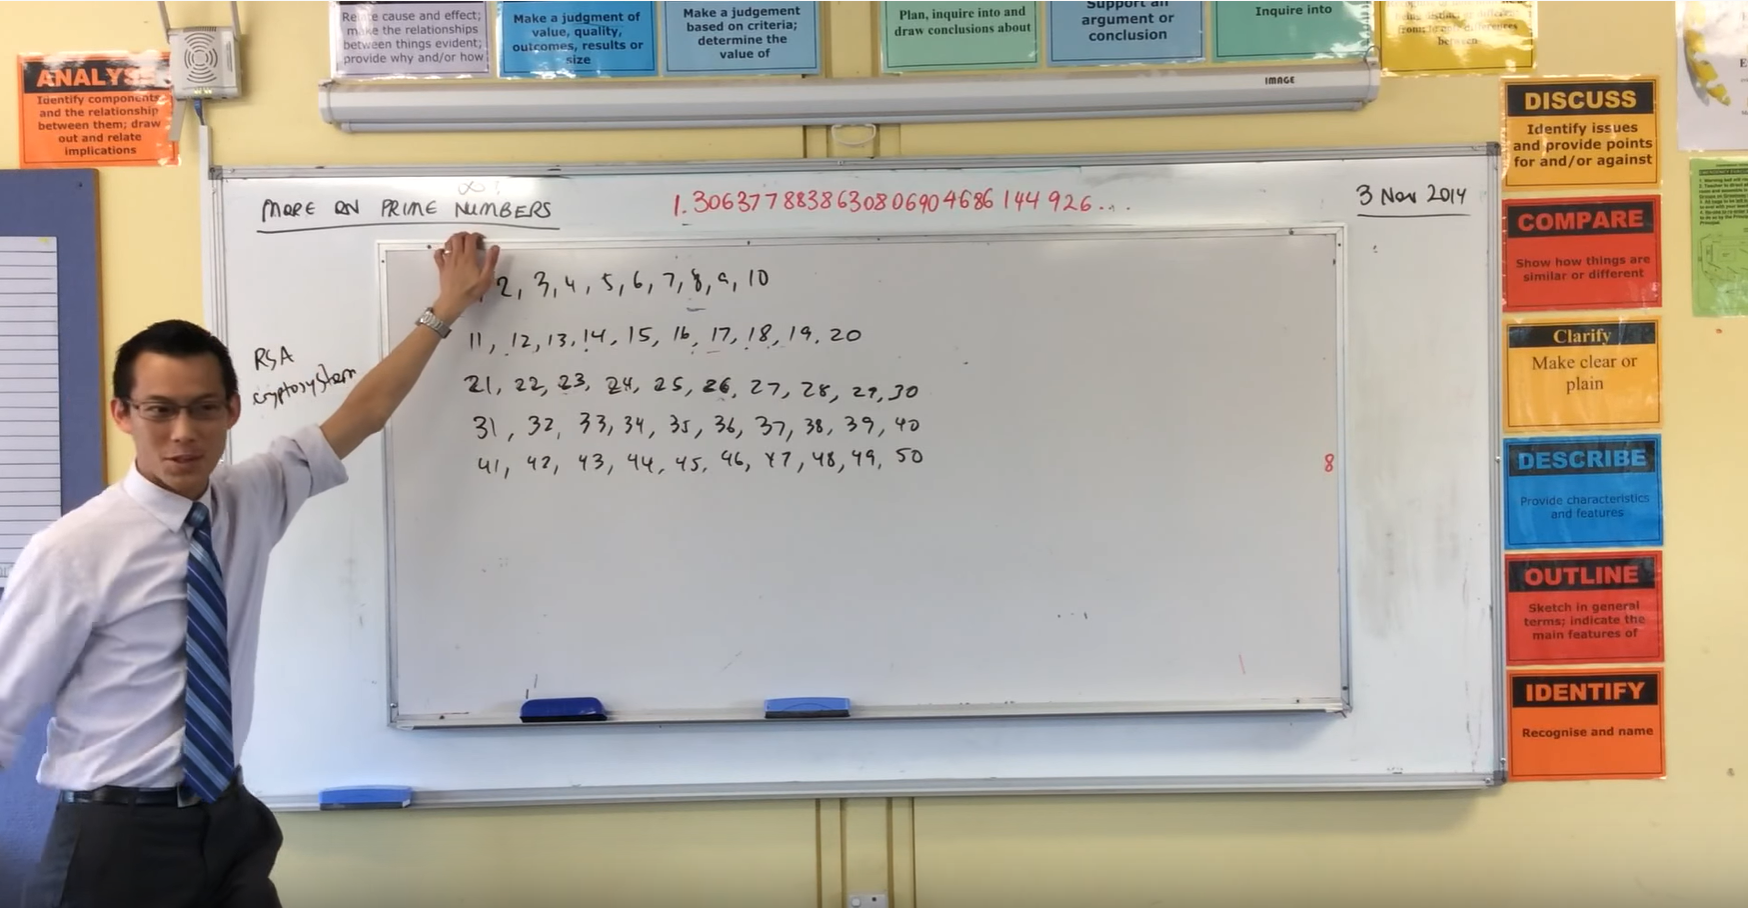 Relate cause and effect;
make the relationships
between things evident;
provide why and/or how
Make a judgment of
value, quality,
outcomes, results or
size
Make a judgement
based on criteria;
determine the
value of
Plan, inquire into and
draw conclusions about
Support an
argument or
conclusion
Inquire into
between
IMAGE
ANALYSE
Identify components
and the relationship
between them; draw
out and relate
implications
∞?
MORE ON PRIME NUMBERS
1.306377883863080690468614 4926...
3 Nov 2014
RSA
cryptosystem
2, 3, 4, 5, 6, 7, 8, 9, 10
11, 12, 13, 14, 15, 16, 17, 18, 19, 20
21, 22, 23, 24, 25, 26, 27, 28, 29, 30
31, 32, 33, 34, 35, 36, 37, 38, 39, 40
41, 42, 43, 44, 45, 46, 47, 48, 49, 50
8
DISCUSS
Identify issues
and provide points
for and/or against
COMPARE
Show how things are
similar or different
Clarify
Make clear or
plain
DESCRIBE
Provide characteristics
and features
OUTLINE
Sketch in general
terms; indicate the
main features of
IDENTIFY
Recognise and name